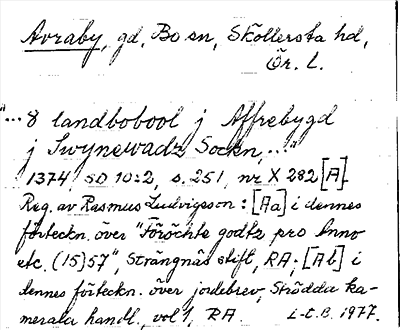 Avraby, gd, Bo sn, Sköllersta hd,
Ör. l.
"...8 landbobool j Affrebygd
j Swynewadz Sockn,..."
1374, SD 10:2, s. 251, nr X 282 [A].
Reg. av Rasmus Ludvigsson: [Aa] i dennes
förteckn. över "Föröchte godtz pro Anno
etc. (15)57", Strängnäs stift, RA; [Ab] i
dennes förteckn. över jordebrev, Strödda ka-
merala handl., vol 1, RA. L-C.B. 1977.